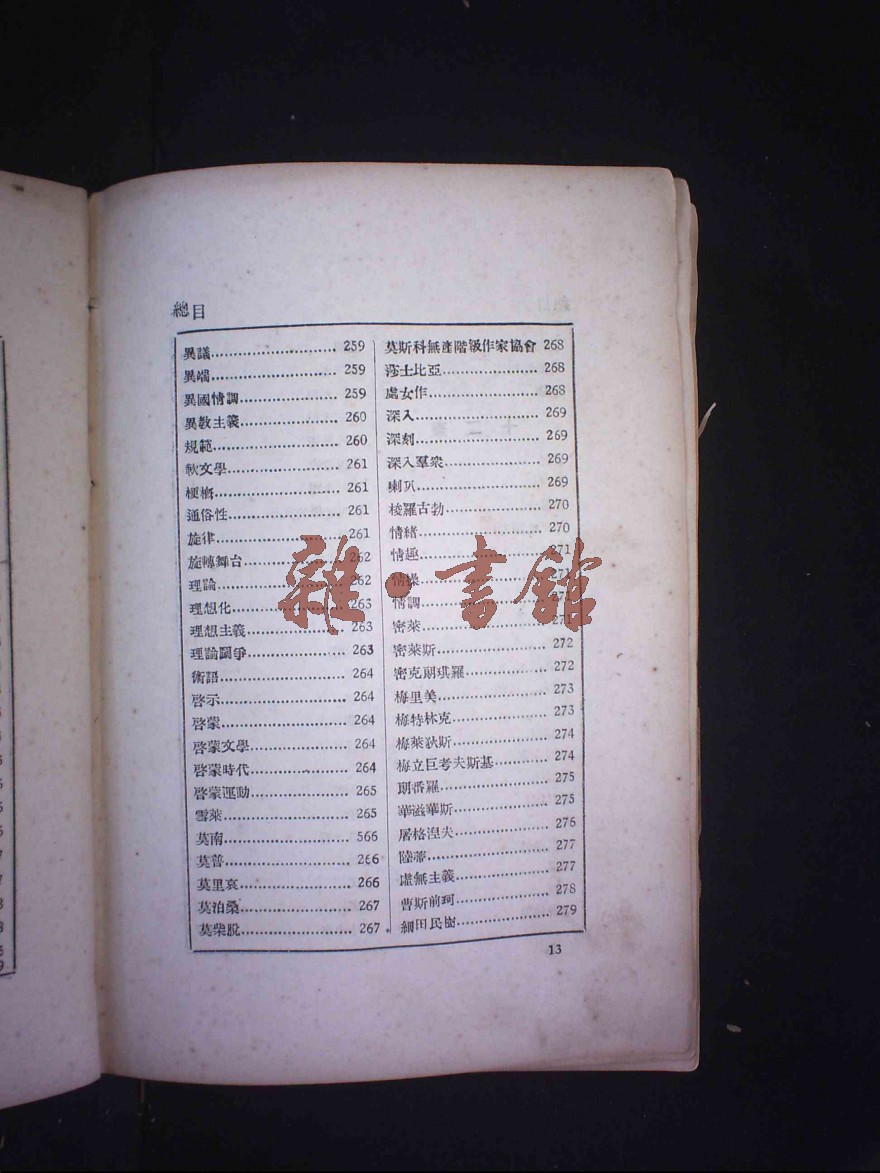 總目
異議 259
異端 259
異國情調 259
異教主義 260
規範 260
軟文學 261
梗槪 261
通俗性 261
旋律 261
旋轉舞台 262
理論 262
理想化 263
理想主義 263
理論鬬爭 263
術語 264
啓示 264
啓蒙 264
啓蒙文學 264
啓蒙時代 264
啓蒙運動 265
雪萊 265
莫南 566
莫普 266
莫里哀 266
莫泊桑 267
莫柴脫 267
莫斯科無產階級作家協會 268
莎士比亞 268
處女作 268
深入 269
深刻 269
深入羣衆 269
喇叭 269
梭羅古勃 270
情緒 270
情趣 271
情操 271
情調 271
密萊 271
密萊斯 272
密克朗琪羅 272
梅里美 273
梅特林克 273
梅萊狄斯 274
梅立巨考夫斯基 274
朗費羅 275
華滋華斯 275
屠格涅夫 276
陸蒂 277
虛無主義 277
曹斯前珂 278
細田民樹 279
13
雜·書館